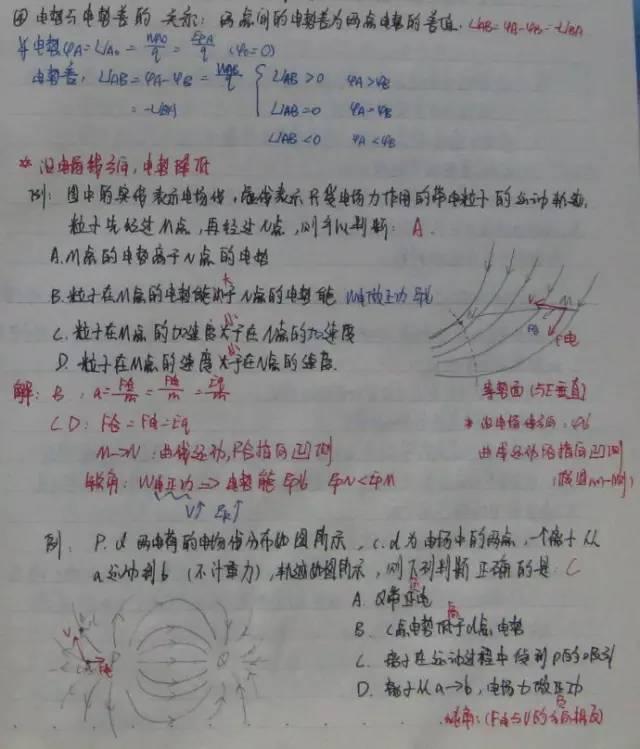 ④ 电势与电势差的关系：两点间的电势差为两点电势的差值. UAB=φA-φB=-UBA
电势φA=UAO=WAO/q=EPA/q (φO=0)
电势差, UAB=φA-φB=WAB/q { UAB>0 φA>φB
=-UBA UAB=0 φA=φB
UAB<0 φA<φB
* 沿电场线方向, 电势降低
例: 图中的实线表示电场线, 虚线表示只受电场力作用的带电粒子的运动轨迹,
粒子先经过M点, 再经过N点, 则可以判断: A.
A. M点的电势高于N点的电势
B. 粒子在M点的电势能小于N点的电势能 W电做正功
大
C. 粒子在M点的加速度大于在N点的加速度
小
D. 粒子在M点的速度大于在N点的速度.
小
V
M
N
F合
F电
等势面 (与E垂直)
解: B: a=F合/m=F电/m=Eq/m
CD: F合=F电=Eq
M→N: 曲线运动, F合指向凹侧
锐角: W电正功 => 电势能 EPN<EPM
V↑ Ek↑
* 沿电场线方向, φ↓
曲线运动F合指向凹侧
例: P. Q 两电荷的电场线分布如图所示, c. d为电场中的两点, 一个离子从
a运动到b (不计重力), 轨迹如图所示, 则下列判断正确的是 C
A. Q带正电
负
B. c点电势低于d点电势
高
C. 离子在运动过程中受到P的吸引
D. 离子从a→b, 电场力做正功
负
钝角: (F电与V的方向相反)
V
F电
P
Q